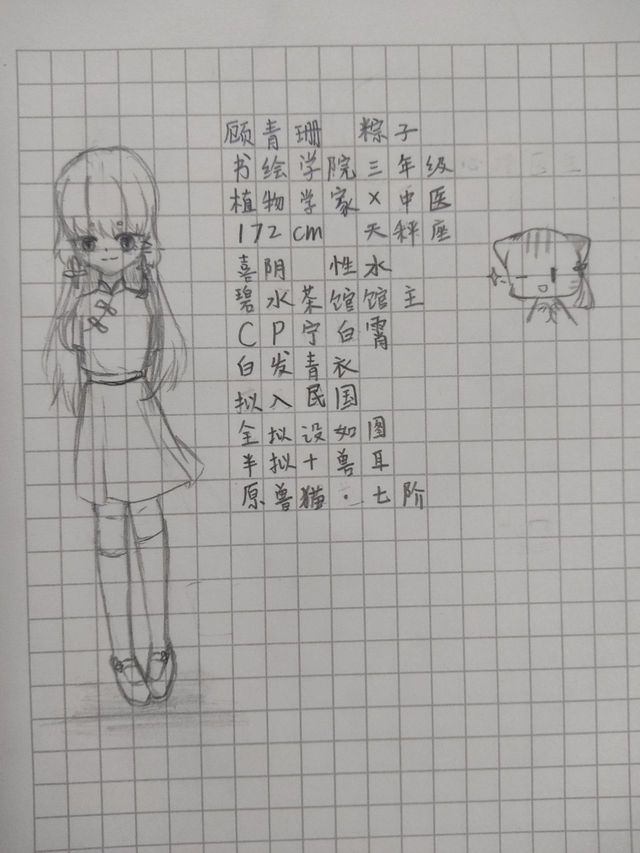 顾青珊 粽子
书绘学院三年级
植物学家×中医
172cm 天秤座
喜阴 性水
碧水茶馆馆主
CP宁白霄
白发青衣
拟入民国
全拟设如图
半拟+兽耳
原兽猫·七阶